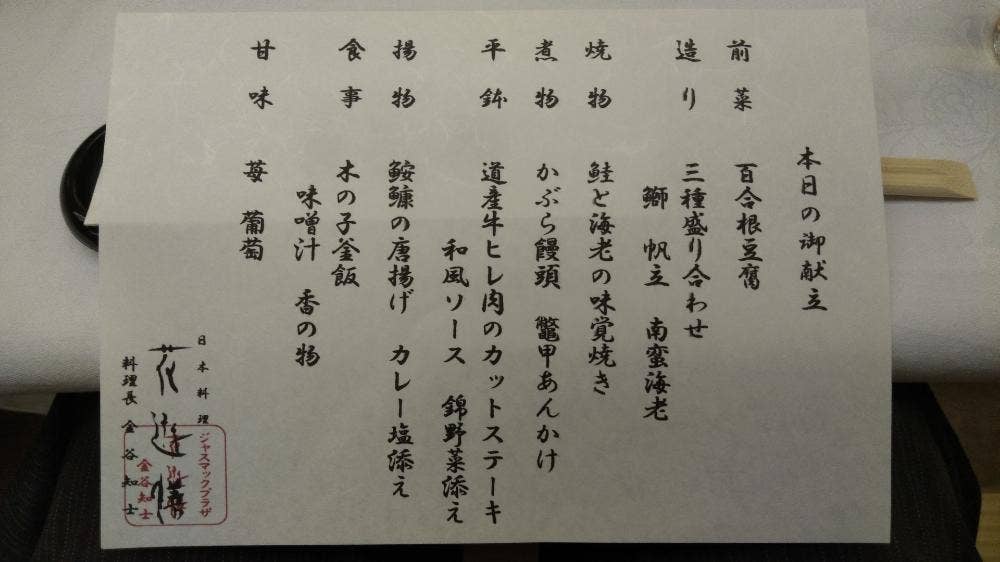 本日の御献立
前菜 百合根豆腐
造り 三種盛り合わせ
鰤 帆立 南蛮海老
焼物 鮭と海老の味覚焼き
煮物 かぶら饅頭 鼈甲あんかけ
平鉢 道産牛ヒレ肉のカットステーキ
和風ソース 錦野菜添え
揚物 鮟鱇の唐揚げ カレー塩添え
食事 木の子釜飯
味噌汁 香の物
甘味 苺 葡萄
日本料理
花遊膳
料理長 金谷知士
ジャスマックプラザ
金谷知士